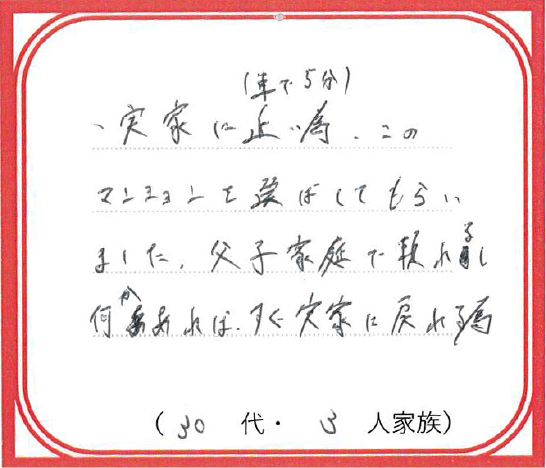 (車で5分)
、実家に近い為、この
マンションを選ばしてもらい
ました。父子家庭で頼れるし
何かあれば、すぐ実家に戻れる為
(30代・3人家族)